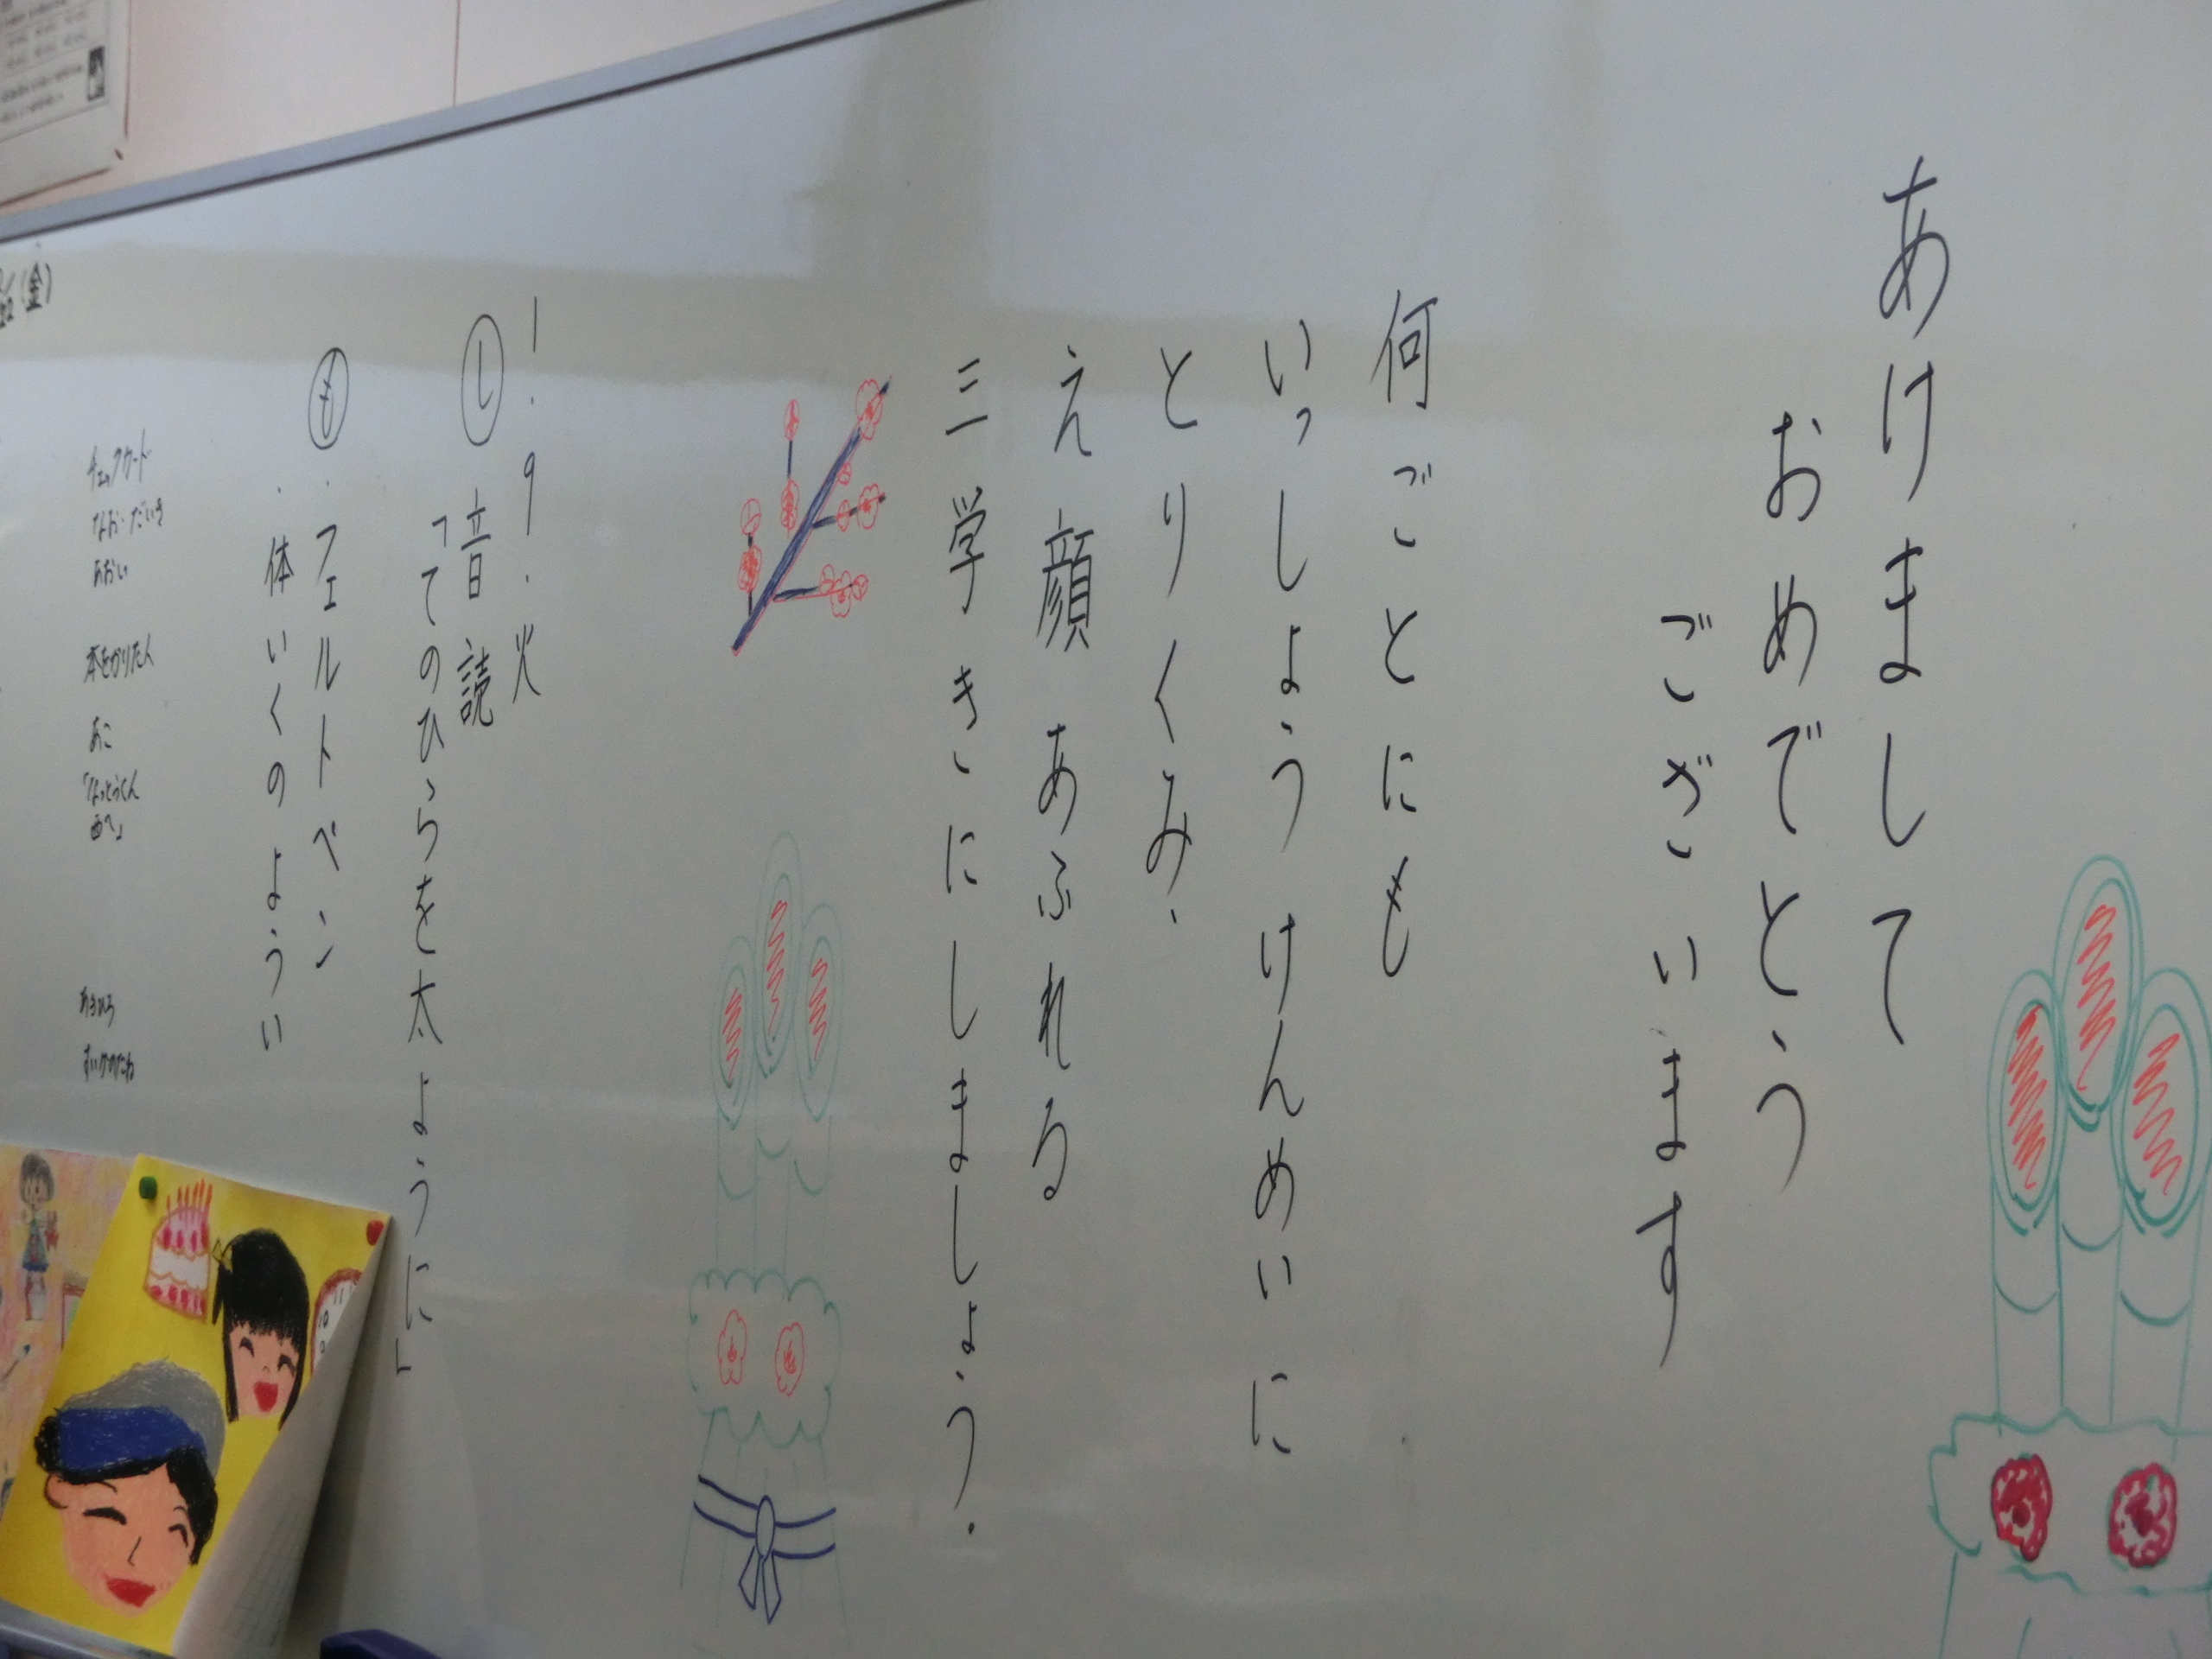 あけまして
おめでとう
ございます
何ごとにも
いっしょうけんめいに
とりくみ、
え顔あふれる
三学きにしましょう。
1.9.火
し 音読
「てのひらを太ように」
も ・フェルトペン
・体いくのようい
(金)
チェックカード
あおい
本をかりた人
あこ
「なっとうくん
西へ」
あきひろ
すいかのたね